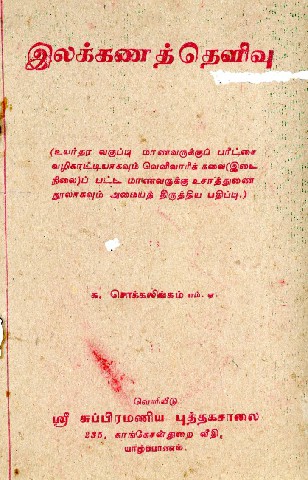 இலக்கணத் தெளிவு
(உயர்தர வகுப்பு மாணவருக்குப் பரீட்சை
வழிகாட்டியாகவும் வெளிவாரிக் கலை(இடை
நிலை)ப் பட்ட மாணவருக்கு உசாத்துணை
நூலாகவும் அமையத் திருத்திய பதிப்பு.)
க. சொக்கலிங்கம் எம். ஏ.
வெளியீடு
ஸ்ரீ சுப்பிரமணிய புத்தகசாலை
235, காங்கேசன்துறை வீதி,
யாழ்ப்பாணம்.